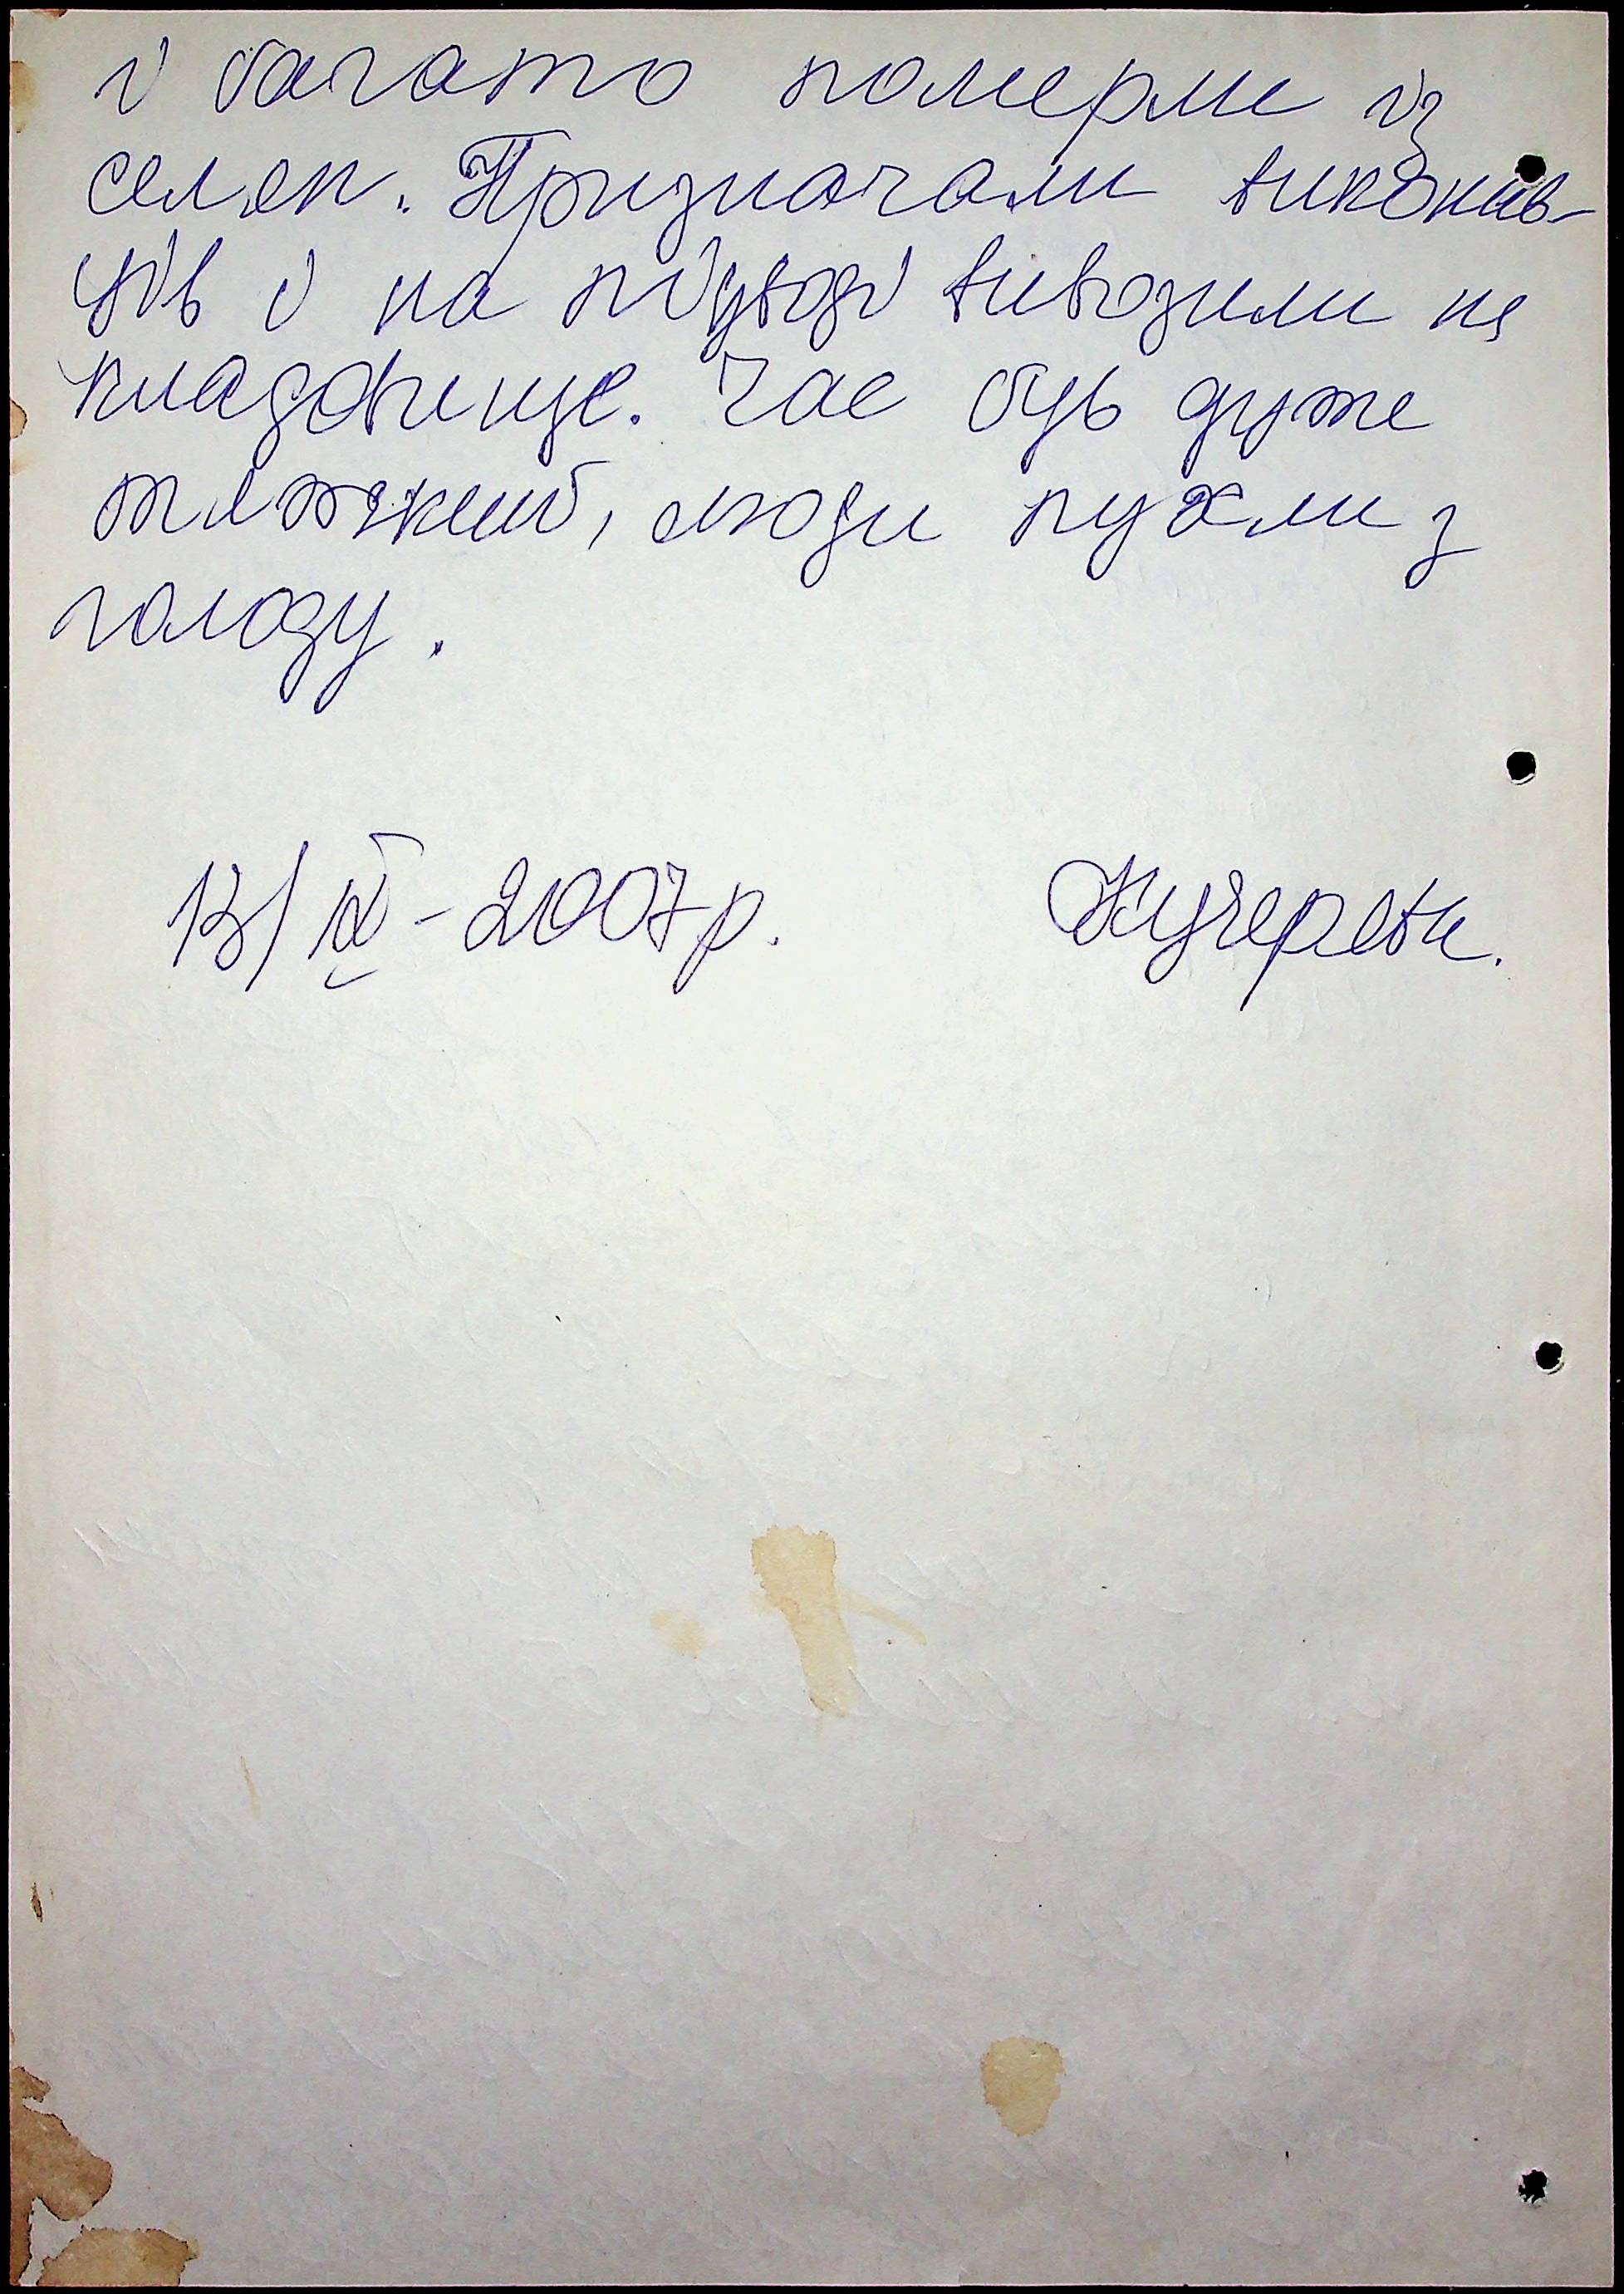 і багато померли із
селян. Призначали виконав-
ців і на підводі вивозили на
кладовище. Час був дуже
тяжкий, люди пухли з
голоду.
13/IV - 2007р. Кучеревк.